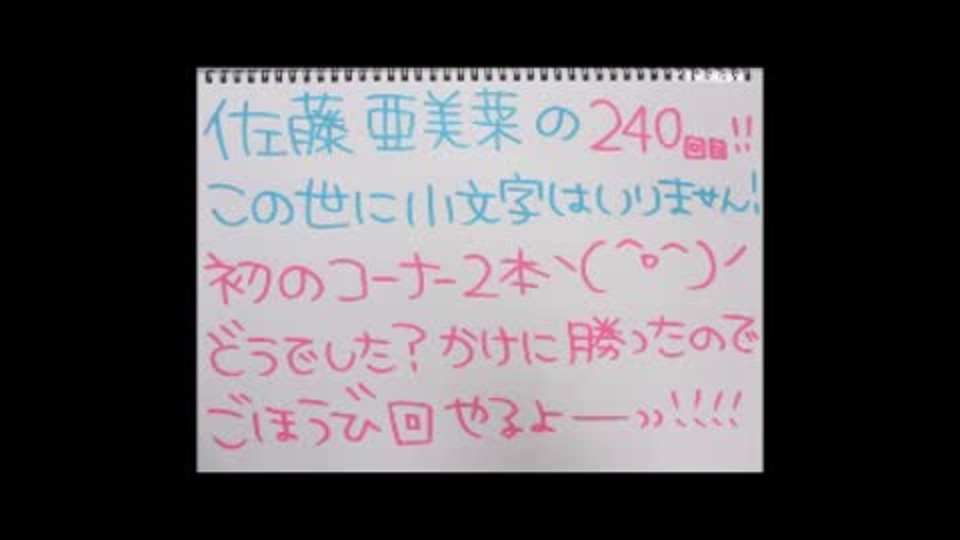 佐藤亜美菜の240回目!!
この世に小文字はいりません!
初のコーナー2本ヽ(^o^)ノ
どうでした?かけに勝ったので
ごほうび回やるよー››!!!!